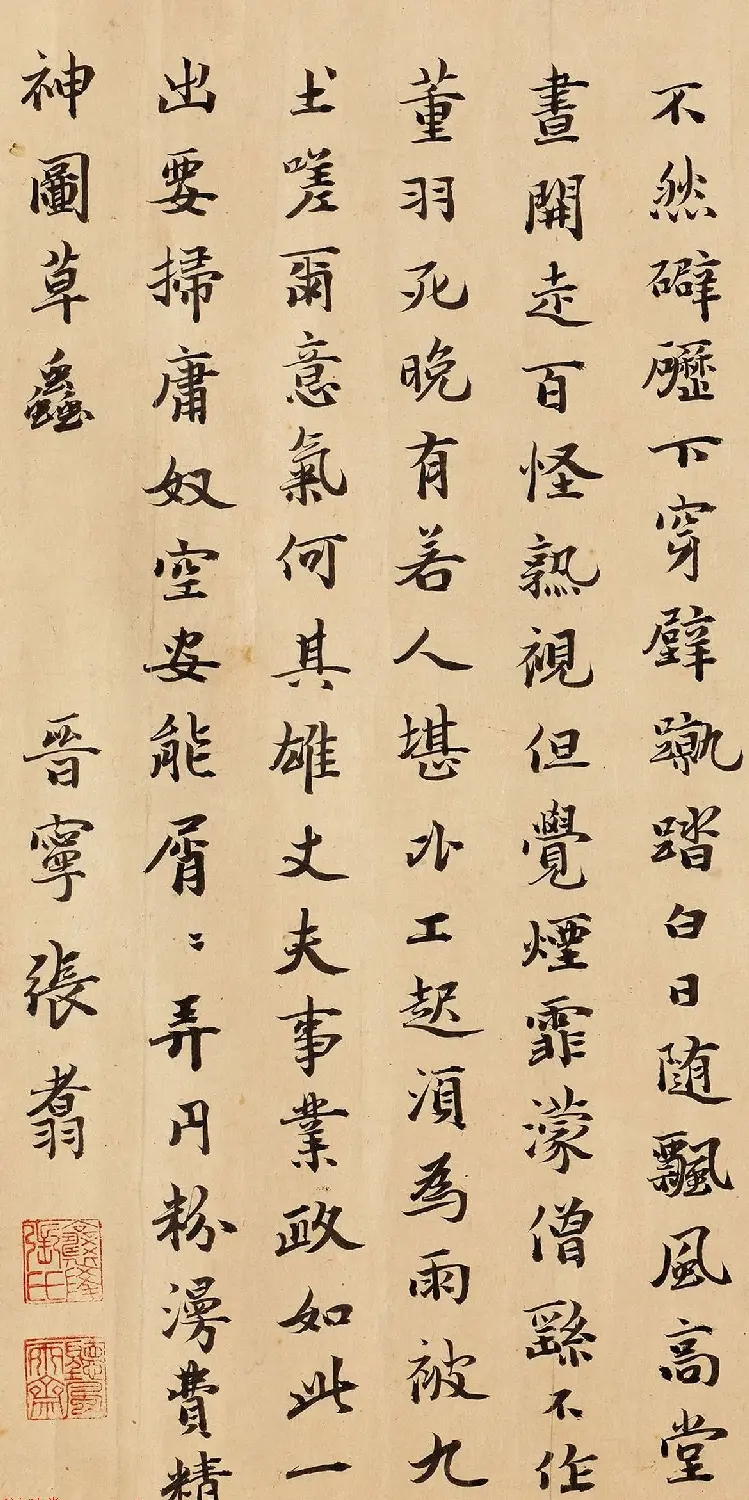 不然礔礰下穿壁蹴踏白日随飄風高堂
晝開走百怪熟視但覺煙霏濛僧繇不作
董羽死晚有若人堪比工起湏為雨被九
土嗟爾意氣何其雄丈夫事業政如此一
出要掃庸奴空安能屑〻弄円粉漫費精
神圖草蟲
晋寧張翥